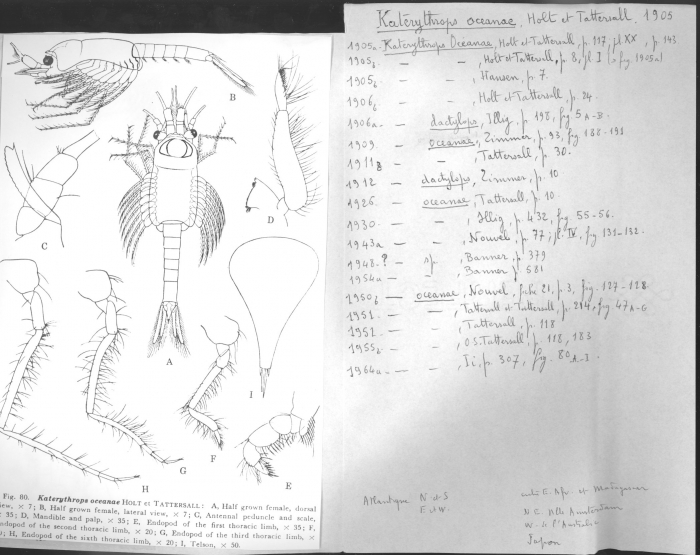 B
C
D
A
I
F
G
E
H
Fig. 80. Katerythrops oceanae HOLT et TATTERSALL: A, Half grown female, dorsal
view, × 7; B, Half grown female, lateral view, × 7; C, Antennal peduncle and scale,
× 35; D, Mandible and palp, × 35; E, Endopod of the first thoracic limb, × 35; F,
Endopod of the second thoracic limb, × 20; G, Endopod of the third thoracic limb, ×
20; H, Endopod of the sixth thoracic limb, × 20; I, Telson, × 50.
Katerythrops oceanae, Holt et Tattersall, 1905
1905a Katerythrops Oceanae, Holt et Tattersall, p. 117, pl XX, p. 143
1905b — — , Holt et Tattersall, p. 8, pl. I (= fig 1905a)
1905b — — , Hansen, p. 7.
1906b — — , Holt et Tattersall, p. 24.
1906a — dactylops, Illig, p. 198, fig 5 A-B.
1909 — oceanae, Zimmer, p. 93, fig 188-191
1911b — — , Tattersall, p. 30.
1912 — dactylops, Zimmer, p. 10
1926 — oceanae, Tattersall, p. 10.
1930 — — , Illig, p. 432, fig 55-56.
1943a — — , Nouvel, p. 77, pl. IV, fig 131-132.
1948 ? — sp., Banner, p. 379
1954a — Banner, p. 581
1950b — oceanae, Nouvel, fiche 21, p. 3, fig. 127-128
1951 — — , Tattersall et Tattersall, p. 214, fig 47 A-G
1951 — — , Tattersall, p. 118
1955b — — , O.S. Tattersall, p. 118, 183
1964a — — , Ii, p. 307, fig. 80 A-I.
Atlantique N et S
E et W.
entre E. Afr. et Madagascar
N.E. Ile Amsterdam
W. de l'Australie
Japon